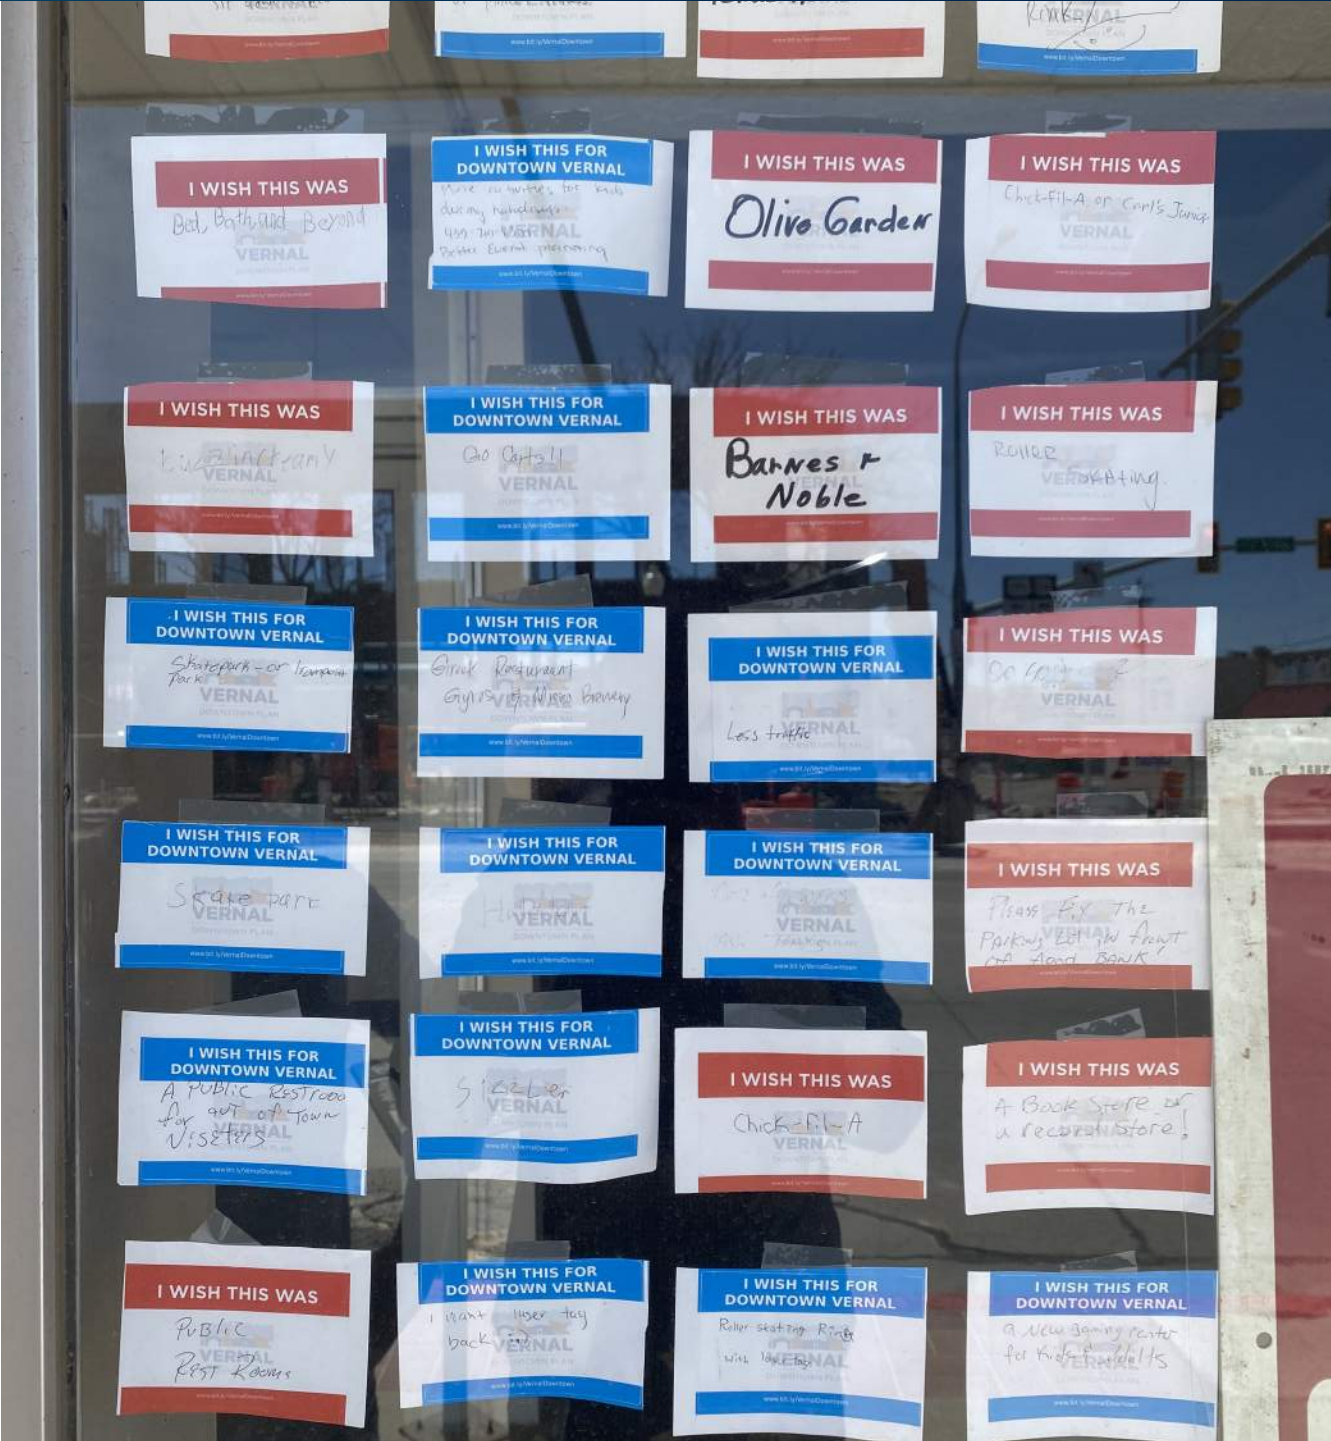 www.bit.ly/VernalDowntown
www.bit.ly/VernalDowntown
www.bit.ly/VernalDowntown
VERNAL
www.bit.ly/VernalDowntown
I WISH THIS WAS
Bed, Bath and Beyond
VERNAL
DOWNTOWN PLAN
www.bit.ly/VernalDowntown
I WISH THIS FOR
DOWNTOWN VERNAL
More activities for kids
during holidays
VERNAL
Better Event planning
www.bit.ly/VernalDowntown
I WISH THIS WAS
Olive Garden
www.bit.ly/VernalDowntown
I WISH THIS WAS
Chick-Fil-A or Carl's Junior
VERNAL
DOWNTOWN PLAN
www.bit.ly/VernalDowntown
I WISH THIS WAS
VERNAL
DOWNTOWN PLAN
www.bit.ly/VernalDowntown
I WISH THIS FOR
DOWNTOWN VERNAL
Go
VERNAL
DOWNTOWN PLAN
www.bit.ly/VernalDowntown
I WISH THIS WAS
Barnes &
Noble
www.bit.ly/VernalDowntown
I WISH THIS WAS
Roller
Skating
VERNAL
DOWNTOWN PLAN
www.bit.ly/VernalDowntown
I WISH THIS FOR
DOWNTOWN VERNAL
Skatepark - or
Park
VERNAL
DOWNTOWN PLAN
www.bit.ly/VernalDowntown
I WISH THIS FOR
DOWNTOWN VERNAL
Greek Resturaunt
Gyros & Micro Brewery
VERNAL
DOWNTOWN PLAN
www.bit.ly/VernalDowntown
I WISH THIS FOR
DOWNTOWN VERNAL
Less traffic
VERNAL
DOWNTOWN PLAN
www.bit.ly/VernalDowntown
I WISH THIS WAS
VERNAL
www.bit.ly/VernalDowntown
I WISH THIS FOR
DOWNTOWN VERNAL
Skate park
VERNAL
DOWNTOWN PLAN
www.bit.ly/VernalDowntown
I WISH THIS FOR
DOWNTOWN VERNAL
VERNAL
DOWNTOWN PLAN
www.bit.ly/VernalDowntown
I WISH THIS FOR
DOWNTOWN VERNAL
VERNAL
www.bit.ly/VernalDowntown
I WISH THIS WAS
Please Fix The
Parking Lot in front
of food BANK!
VERNAL
www.bit.ly/VernalDowntown
I WISH THIS FOR
DOWNTOWN VERNAL
A PUBLIC RESTROOO
for out of Town
Viseters
VERNAL
www.bit.ly/VernalDowntown
I WISH THIS FOR
DOWNTOWN VERNAL
VERNAL
DOWNTOWN PLAN
www.bit.ly/VernalDowntown
I WISH THIS WAS
Chick-fil-A
VERNAL
www.bit.ly/VernalDowntown
I WISH THIS WAS
A Book Store or
a record Store!
VERNAL
www.bit.ly/VernalDowntown
I WISH THIS WAS
Public
Rest Rooms
VERNAL
www.bit.ly/VernalDowntown
I WISH THIS FOR
DOWNTOWN VERNAL
i want laser tag
back
VERNAL
www.bit.ly/VernalDowntown
I WISH THIS FOR
DOWNTOWN VERNAL
Roller skating Rink
with
VERNAL
DOWNTOWN PLAN
www.bit.ly/VernalDowntown
I WISH THIS FOR
DOWNTOWN VERNAL
a New gaming center
for kids & adults
VERNAL
DOWNTOWN PLAN
www.bit.ly/VernalDowntown